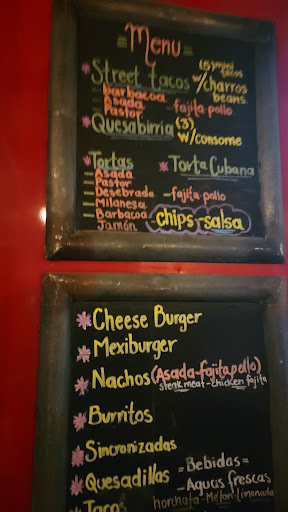 = Menu =
* Street tacos (5) mini tacos
w/charros beans.
- barbacoa
- Asada - fajita pollo
- Pastor
* Quesabirria (3) w/consome
* Tortas * Torta Cubana
- Asada
- Pastor
- Desebrada - fajita pollo
- Milanesa
- Barbacoa chips-salsa
- Jamón
* Cheese Burger
* Mexiburger
* Nachos (Asada-fajita pollo)
steak meat-chicken fajita
* Burritos
* Sincronizadas
* Quesadillas = Bebidas =
- Aguas frescas
* Tacos horchata-Melon-limonada